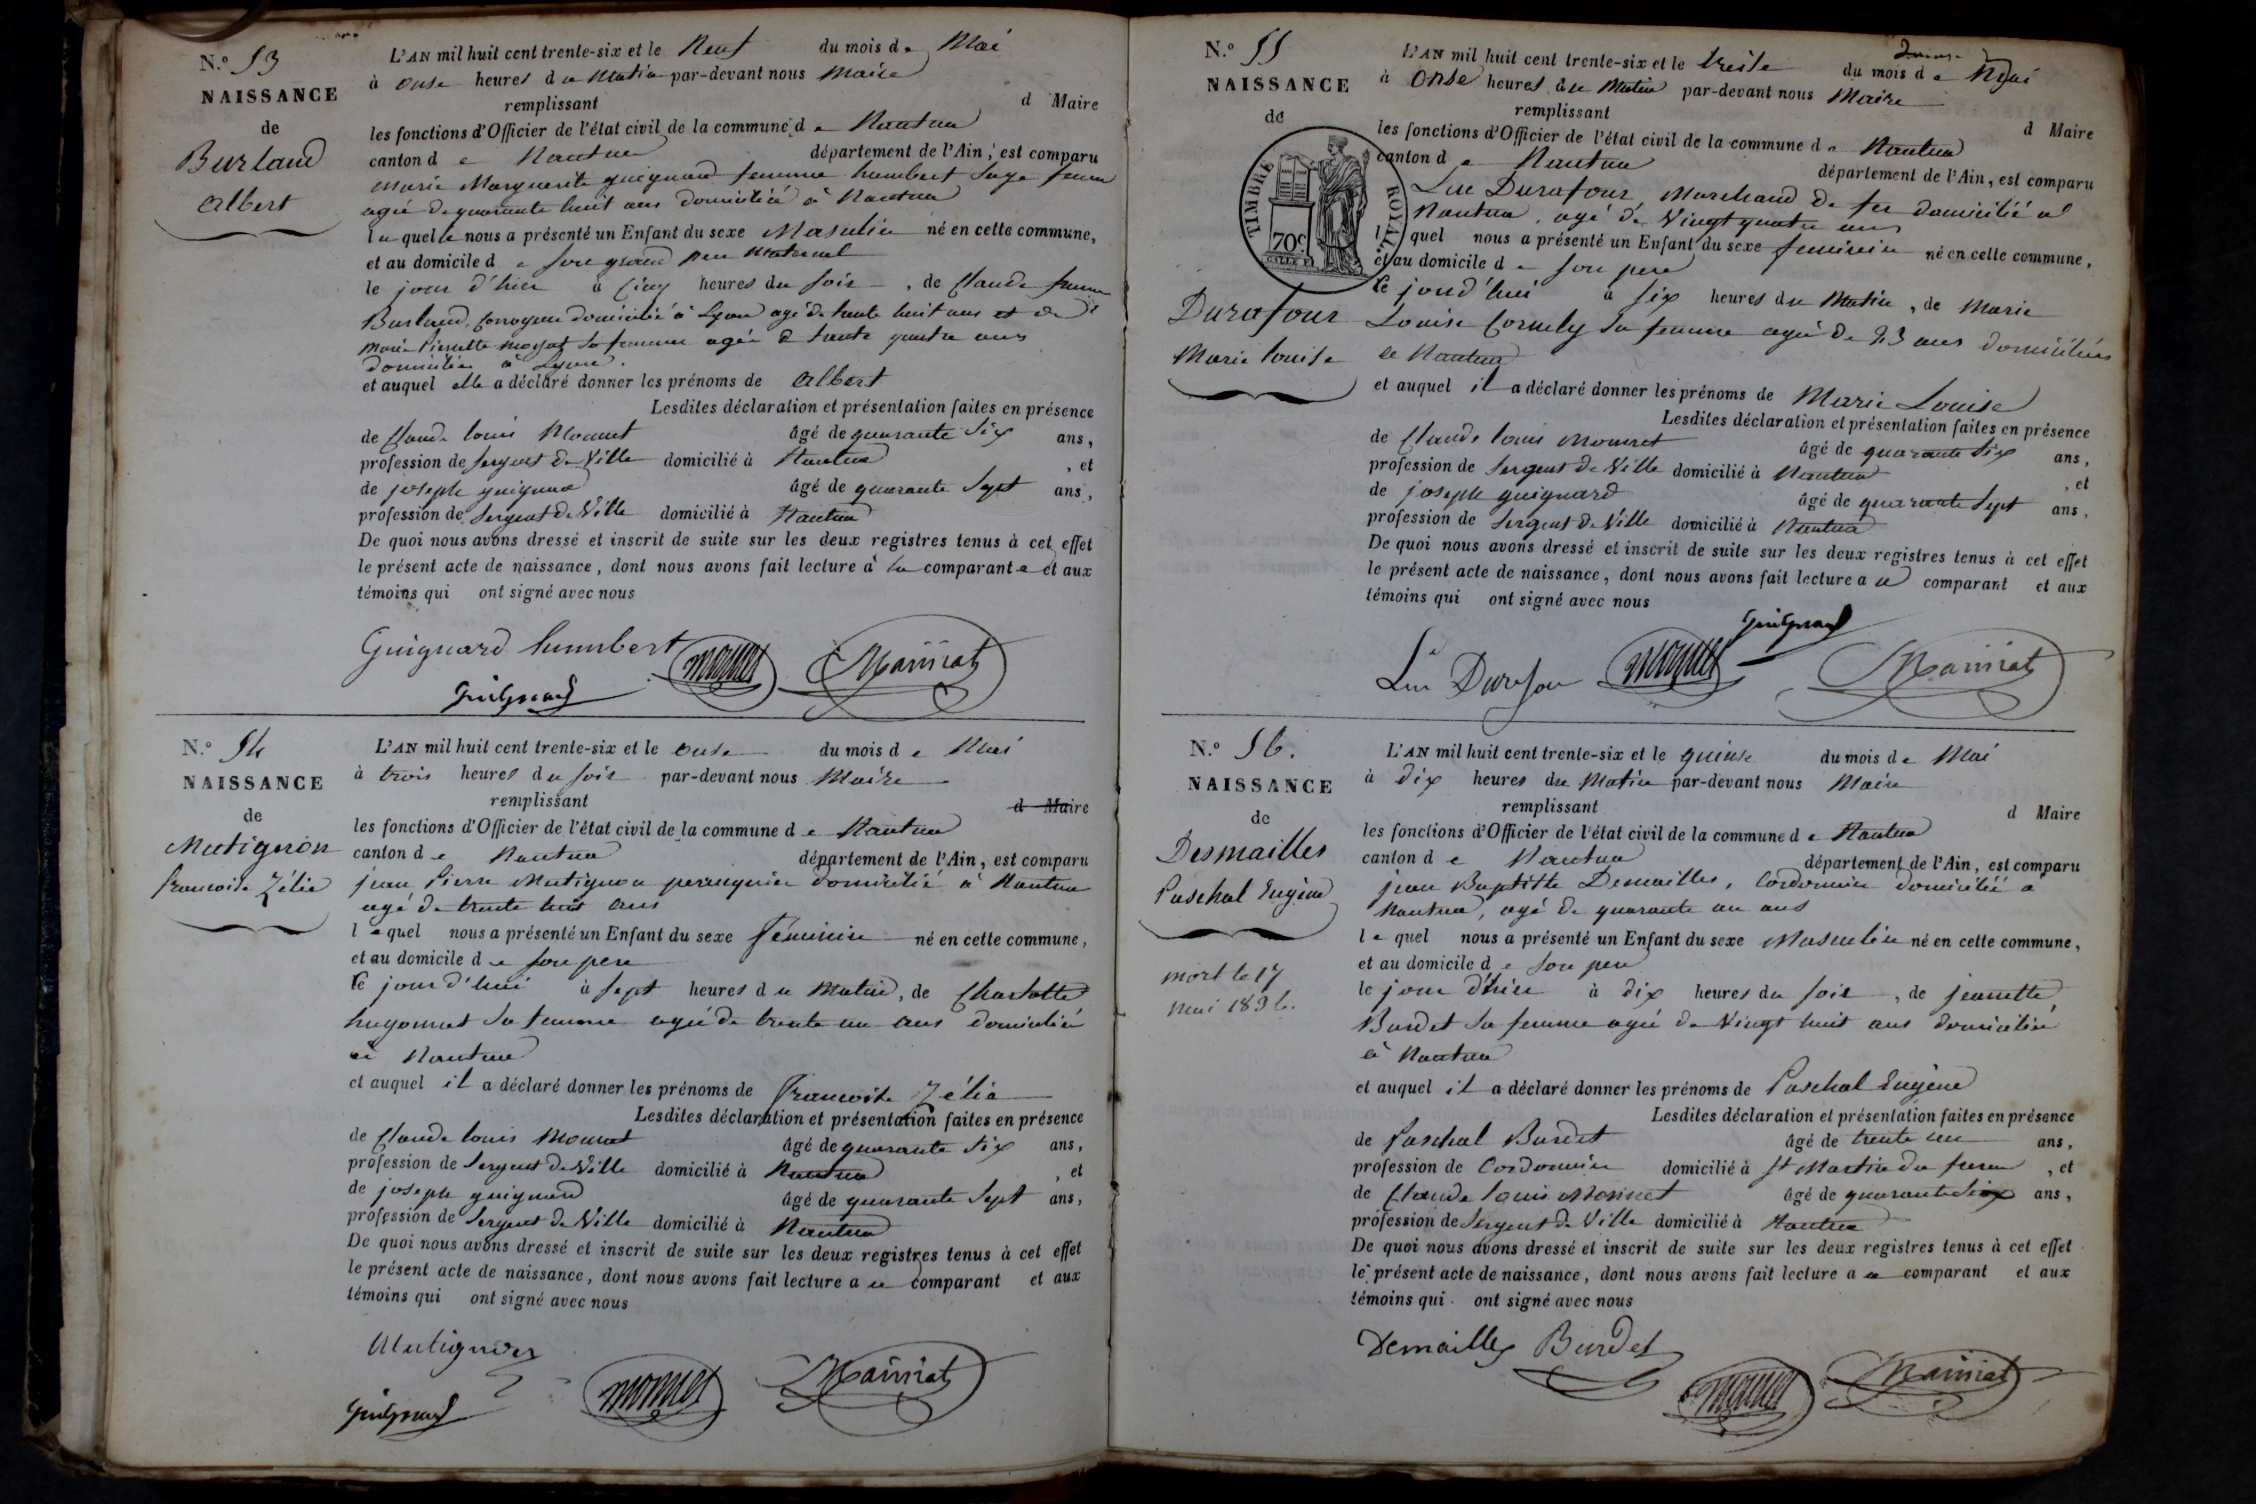 N.º 53
NAISSANCE
de
Burland
Albert
L'AN mil huit cent trente-six et le Neuf du mois de Mai
à onse heures du Matin par-devant nous Maire
remplissant d Maire
les fonctions d'Officier de l'état civil de la commune de Nantua
canton de Nantua département de l'Ain, est comparu
Marie Marguerite guignard femme humbert Sage femme
agée de quarante huit ans domiciliée à Nantua
laquelle nous a présenté un Enfant du sexe Masculin né en cette commune,
et au domicile de son grand pere Maternel
le jour d'hier à Cinq heures du soir, de Claude
Burland, domicilié à Lyon agé de trente huit ans et de
Marie Pierrette sa femme agée de trente quatre ans
domiciliée à Lyon.
et auquel elle a déclaré donner les prénoms de Albert
Lesdites déclaration et présentation faites en présence
de Claude louis Monnet âgé de quarante six ans,
profession de Sergent de Ville domicilié à Nantua, et
de joseph guignard âgé de quarante Sept ans,
profession de Sergent de Ville domicilié à Nantua
De quoi nous avons dressé et inscrit de suite sur les deux registres tenus à cet effet
le présent acte de naissance, dont nous avons fait lecture à la comparante et aux
témoins qui ont signé avec nous
Guignard humbert monnet Mainiat
Guignard
N.º 54
NAISSANCE
de
Mutignon
francoise Zélie
L'AN mil huit cent trente-six et le onse du mois de Mai
à trois heures du soir par-devant nous Maire
remplissant d Maire
les fonctions d'Officier de l'état civil de la commune de Nantua
canton de Nantua département de l'Ain, est comparu
jean Pierre Mutignon peruquier domicilié à Nantua
agé de trente huit ans
lequel nous a présenté un Enfant du sexe féminin né en cette commune,
et au domicile de son pere
le jour d'hui à sept heures du Matin, de Charlotte
hugonnet sa femme agée de trente un ans domiciliée
à Nantua
et auquel il a déclaré donner les prénoms de francoise Zélie
Lesdites déclaration et présentation faites en présence
de Claude louis Monnet âgé de quarante six ans,
profession de Sergent de Ville domicilié à Nantua, et
de joseph guignard âgé de quarante Sept ans,
profession de Sergent de Ville domicilié à Nantua
De quoi nous avons dressé et inscrit de suite sur les deux registres tenus à cet effet
le présent acte de naissance, dont nous avons fait lecture a ce comparant et aux
témoins qui ont signé avec nous
Mutignon
Guignard monnet Mainiat
N.º 55
NAISSANCE
de
TIMBRE ROYAL
70c
Durafour
Marie louise
L'AN mil huit cent trente-six et le treise du mois de Mai
à onse heures du Matin par-devant nous Maire
remplissant d Maire
les fonctions d'Officier de l'état civil de la commune de Nantua
canton de Nantua département de l'Ain, est comparu
Luc Durafour Marchand de fer domicilié a
Nantua, agé de Vingt quatre ans
l quel nous a présenté un Enfant du sexe feminin né en cette commune,
et au domicile de son pere
le jourd'hui à six heures du Matin, de Marie
Louise Cornely sa femme agée de 23 ans domiciliés
à Nantua
et auquel il a déclaré donner les prénoms de Marie Louise
Lesdites déclaration et présentation faites en présence
de Claude louis Monnet âgé de quarante six ans,
profession de Sergent de Ville domicilié à Nantua, et
de joseph guignard âgé de quarante Sept ans,
profession de Sergent de Ville domicilié à Nantua
De quoi nous avons dressé et inscrit de suite sur les deux registres tenus à cet effet
le présent acte de naissance, dont nous avons fait lecture a ce comparant et aux
témoins qui ont signé avec nous
Guignard
Luc Durafour monnet Mainiat
N.º 56.
NAISSANCE
de
Desmailles
Paschal Eugène
mort le 17
mai 1836.
L'AN mil huit cent trente-six et le quinse du mois de Mai
à dix heures du Matin par-devant nous Maire
remplissant d Maire
les fonctions d'Officier de l'état civil de la commune de Nantua
canton de Nantua département de l'Ain, est comparu
jean Baptiste Demailles, Cordonnier domicilié a
Nantua, agé de quarante un ans
lequel nous a présenté un Enfant du sexe Masculin né en cette commune,
et au domicile de son pere
le jour d'hier à dix heures du soir, de jeannette
Burdet sa femme agée de Vingt huit ans domiciliée
à Nantua
et auquel il a déclaré donner les prénoms de Paschal Eugène
Lesdites déclaration et présentation faites en présence
de Paschal Burdet âgé de trente un ans,
profession de Cordonnier domicilié à St Martin du frene, et
de Claude louis Monnet âgé de quarante six ans,
profession de Sergent de Ville domicilié à Nantua
De quoi nous avons dressé et inscrit de suite sur les deux registres tenus à cet effet
le présent acte de naissance, dont nous avons fait lecture a ce comparant et aux
témoins qui ont signé avec nous
Demailles Burdet
monnet Mainiat